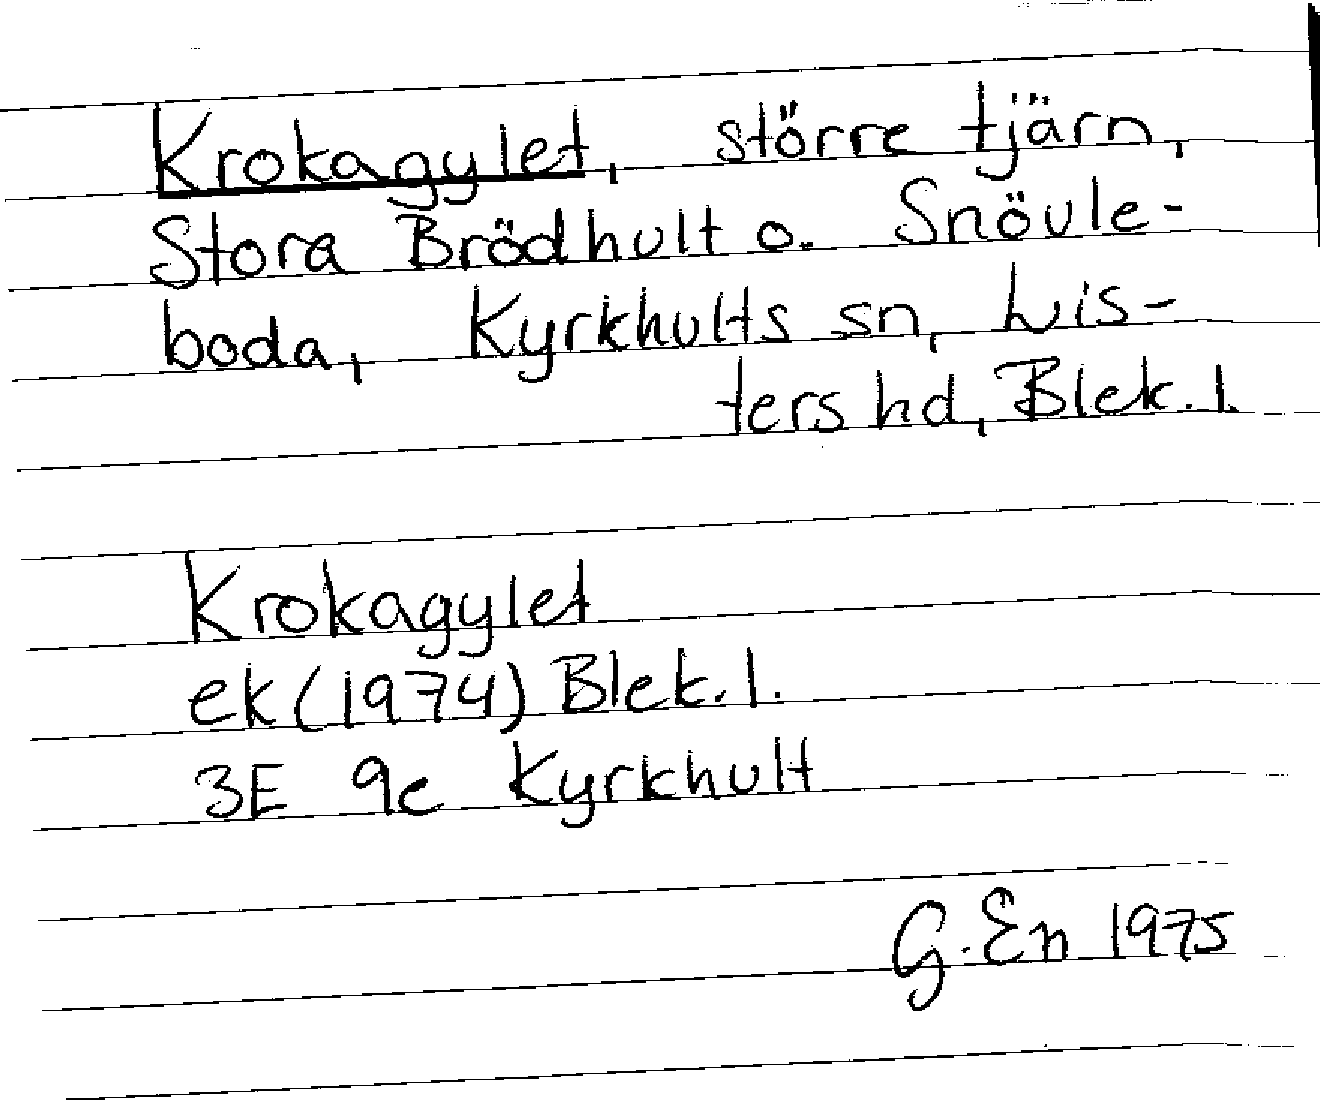 Krokagylet, större tjärn,
Stora Brödhult o. Snövle-
boda, Kyrkhults sn, Lis-
ters hd, Blek. l.
Krokagylet
ek (1974) Blek. l.
3E 9c Kyrkhult
G. En 1975